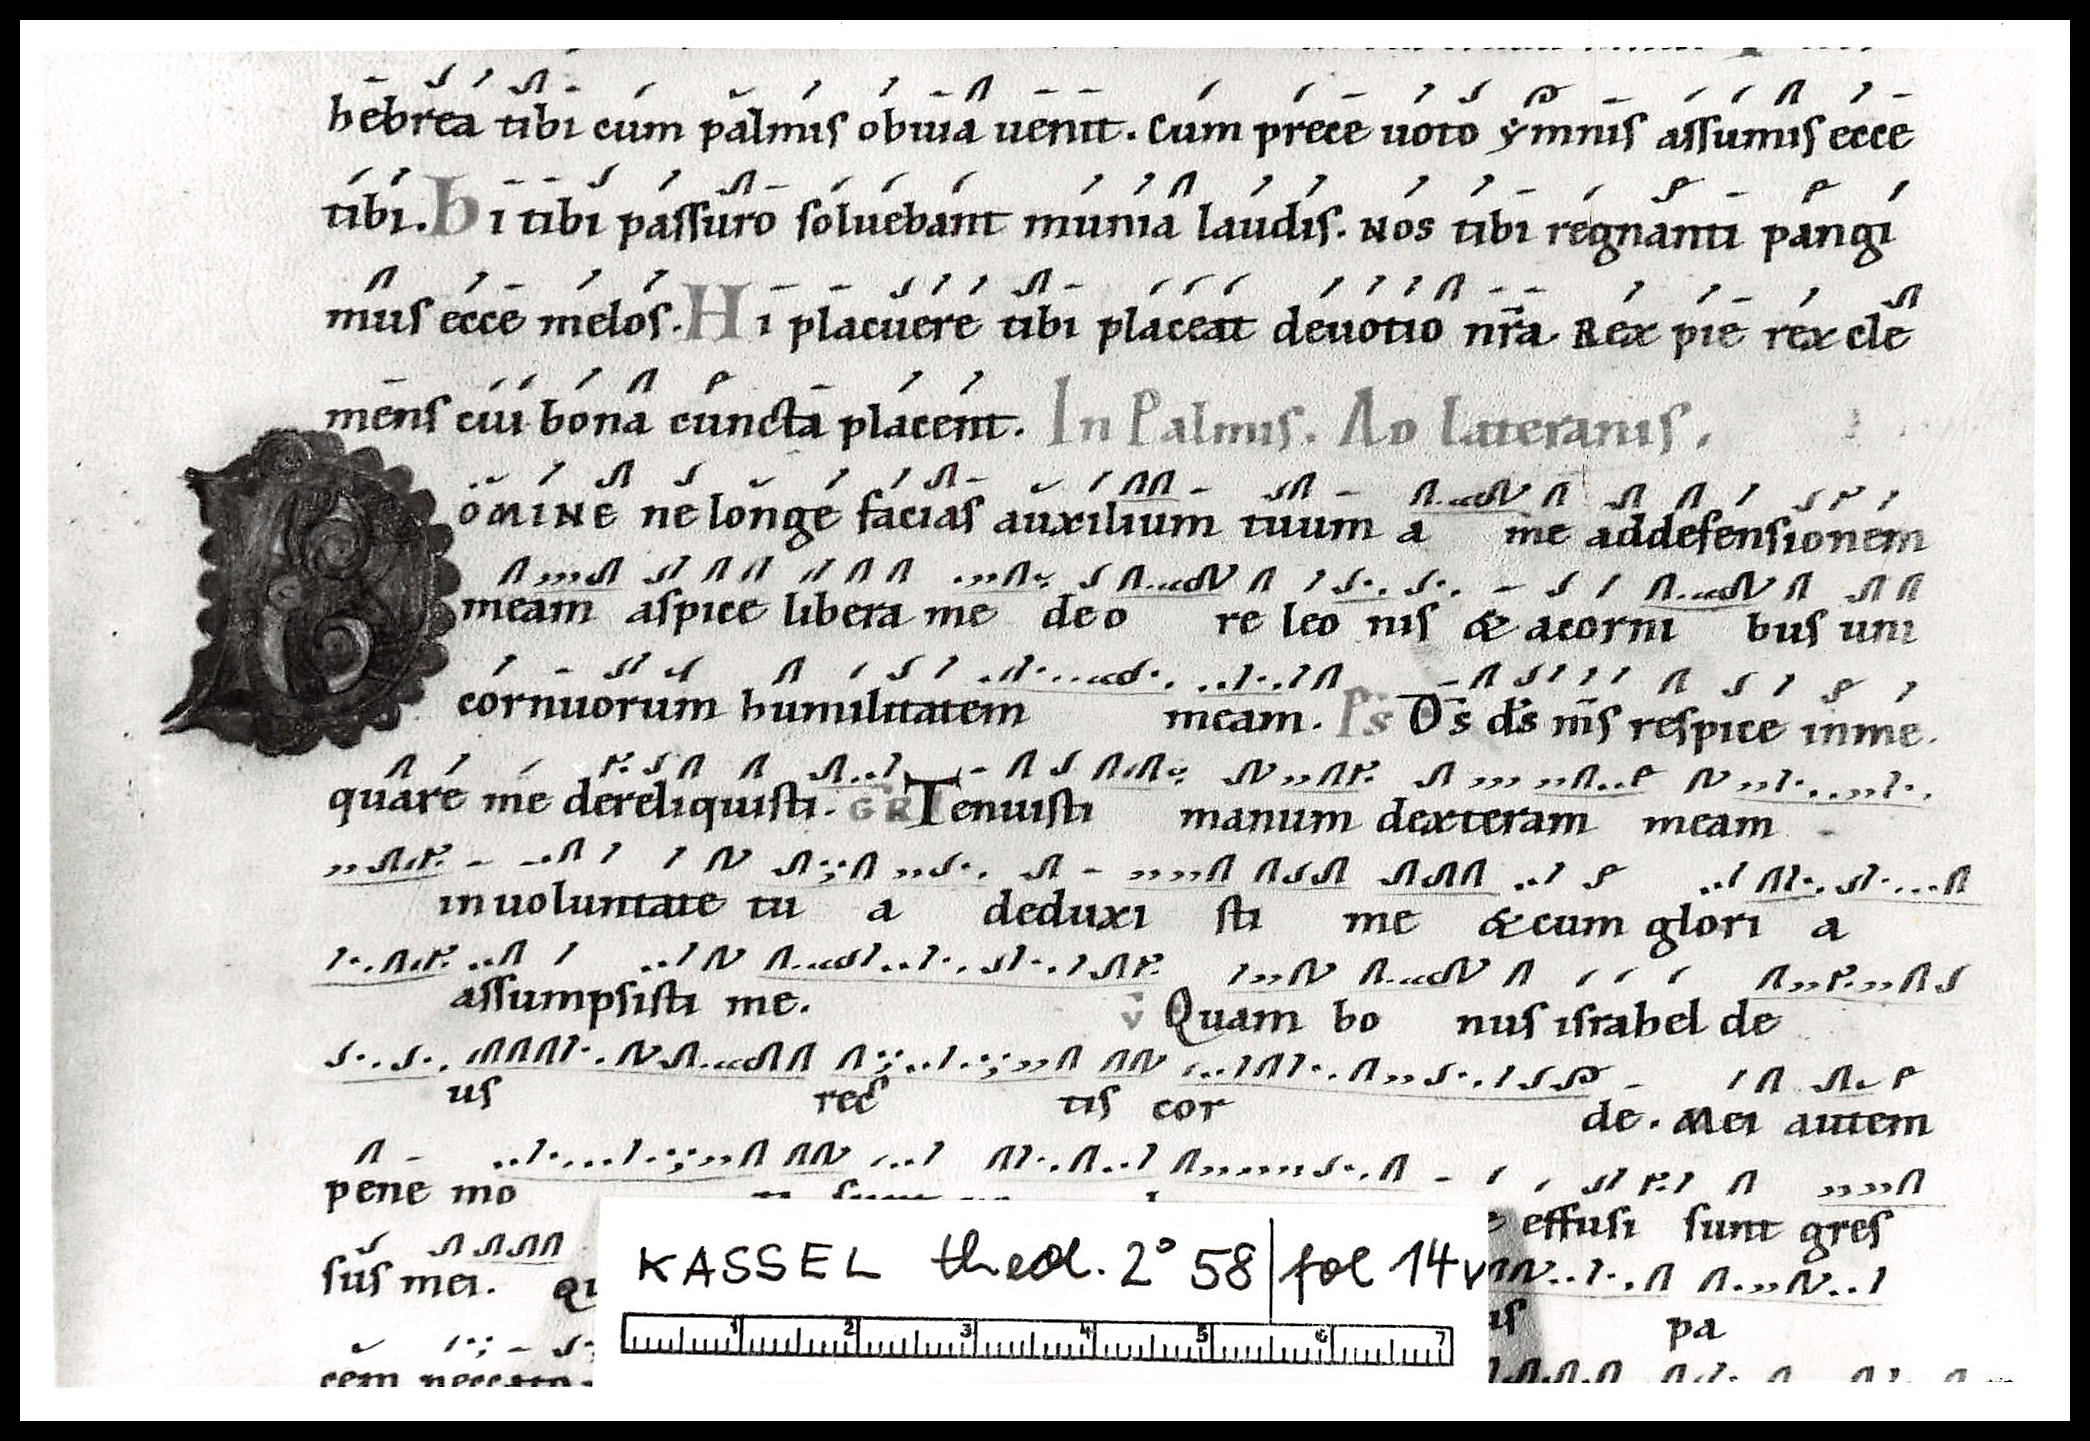 hebrea tibi cum palmis obvia uenit. Cum prece uoto ymnis assumus ecce
tibi. Hi tibi passuro soluebant munia laudis. Nos tibi regnanti pangi
mus ecce melos. Hi placuere tibi placeat deuotio nr̄a. Rex pie rex cle
mens cui bona cuncta placent. In Palmis. Ad Lateranis.
DOMINE ne longe facias auxilium tuum a me addefensionem
meam aspice libera me de o re leo nis & acorni bus uni
cornuorum humilitatem meam. Ps D̄s ds m̄s respice inme.
quare me dereliquisti. GR Tenuisti manum dexteram meam
inuoluntate tu a deduxi sti me & cum glori a
assumpsisti me. v Quam bo nus israhel de
us rec tis cor de. Mei autem
pene mo effusi sunt gres
sus mei.
pa
KASSEL theol. 2° 58 | fol 14v
1 2 3 4 5 6 7